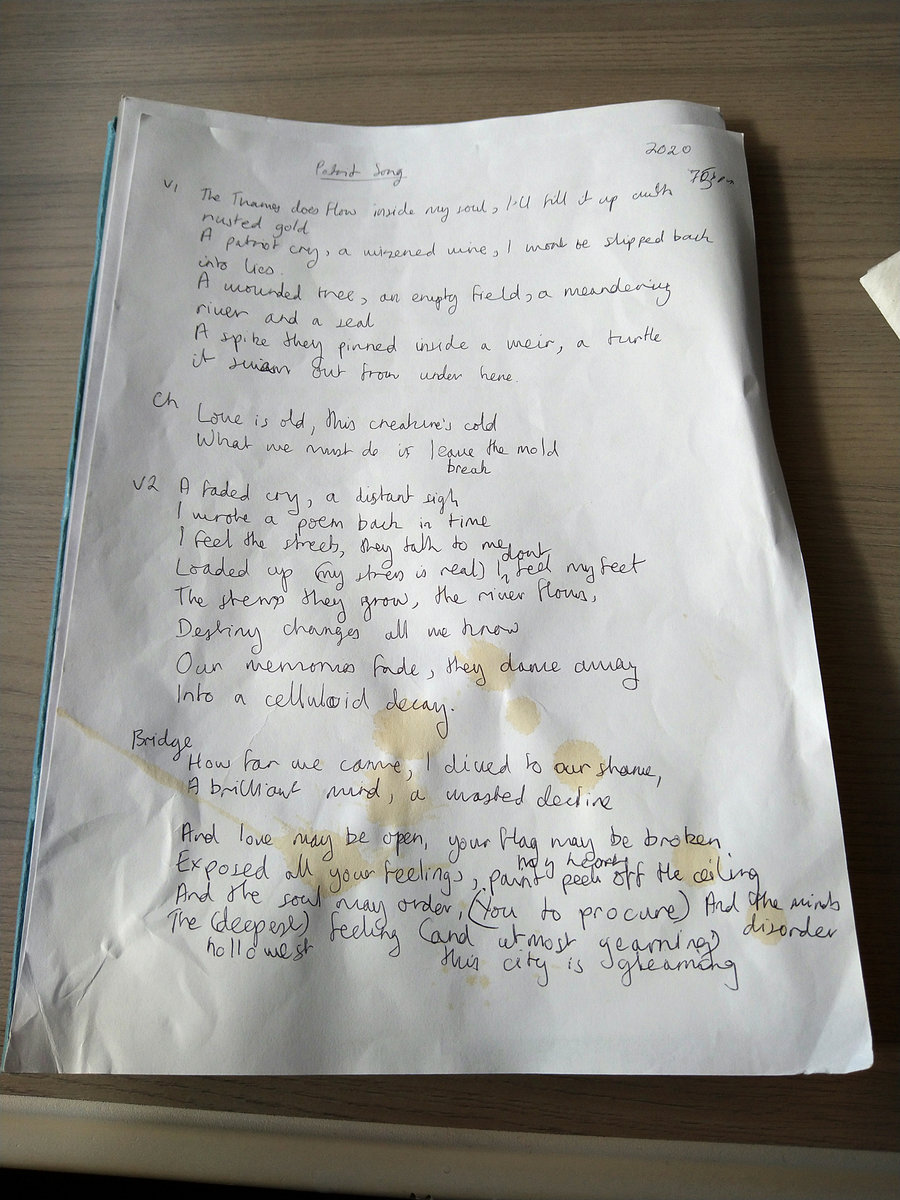 2020
Patriot Song
V1 The Thames does flow inside my soul, I'll fill it up with
rusted gold
A patriot cry, a wizened wine, I wont be slipped back
into lies.
A wounded tree, an empty field, a meandering
river and a seal
A spike they pinned inside a weir, a turtle
it swam out from under here.
Ch
Love is old, this creature's cold
What we must do is leave the mold
break
V2 A faded cry, a distant sigh
I wrote a poem back in time
I feel the streets, they talk to me
dont
Loaded up (my stress is real) I feel my feet
The stems they grow, the river flows,
Destiny changes all we know
Our memories fade, they dance away
Into a celluloid decay.
Bridge
How far we came, I dived to our shame,
A brilliant mind, a wasted decline
And love may be open, your flag may be broken.
my heart
Exposed all your feelings, paint peels off the ceiling
And the soul may order, (You to procure) And the minds
disorder
The (deepest) feeling (and utmost yearning)
hollowest this city is gleaming